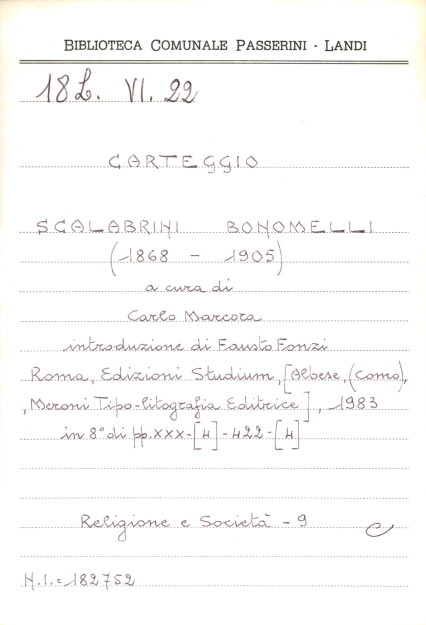 BIBLIOTECA COMUNALE PASSERINI - LANDI
18L. VI. 22
CARTEGGIO
SCALABRINI BONOMELLI
(1868 - 1905)
a cura di
Carlo Marcora
introduzione di Fausto Fonzi
Roma, Edizioni Studium, [Albese, (Como),
, Meroni Tipo-litografia Editrice], 1983
in 8° di pp. XXX-[4]-422-[4]
Religione e Società - 9
C
N.I. = 182752